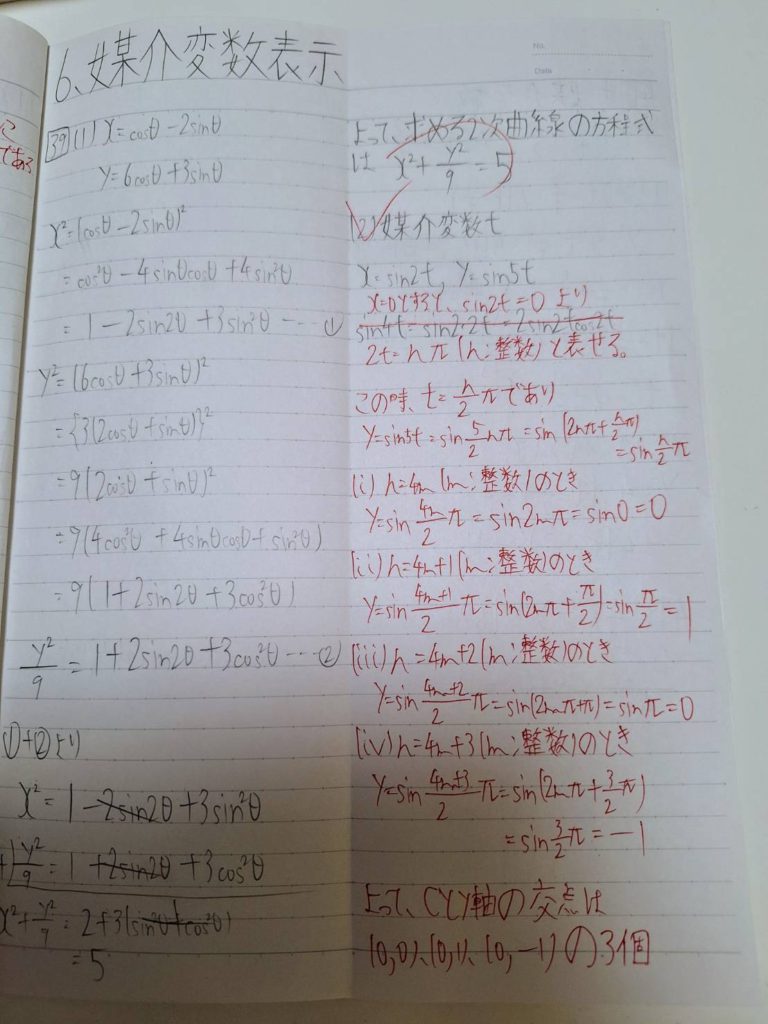 6、媒介変数表示
39 (1) x=cosθ-2sinθ
y=6cosθ+3sinθ
x²=(cosθ-2sinθ)²
=cos²θ-4sinθcosθ+4sin²θ
=1-2sin2θ+3sin²θ…①
y²=(6cosθ+3sinθ)²
={3(2cosθ+sinθ)}²
=9(2cosθ+sinθ)²
=9(4cos²θ+4sinθcosθ+sin²θ)
=9(1+2sin2θ+3cos²θ)
y²/9=1+2sin2θ+3cos²θ…②
①+②より
x²=1-2sin2θ+3sin²θ
+) y²/9=1+2sin2θ+3cos²θ
x²+y²/9=2+3(sin²θ+cos²θ)
=5
よって、求める2次曲線の方程式
は x²+y²/9=5
(2) 媒介変数t
x=sin2t, y=sin5t
x=0とすると、sin2t=0 より
sin4t=sin2・2t=2sin2tcos2t
2t=nπ(n:整数)と表せる。
この時、t=n/2πであり
y=sin5t=sin5/2nπ=sin(2nπ+n/2π)
=sinn/2π
(i) n=4m(m:整数)のとき
y=sin4m/2π=sin2mπ=sin0=0
(ii) n=4m+1(m:整数)のとき
y=sin4m+1/2π=sin(2mπ+π/2)=sinπ/2=1
(iii) n=4m+2(m:整数)のとき
y=sin4m+2/2π=sin(2mπ+π)=sinπ=0
(iv) n=4m+3(m:整数)のとき
y=sin4m+3/2π=sin(2mπ+3/2π)
=sin3/2π=-1
よって、Cとy軸の交点は
(0,0)、(0,1)、(0,-1)の3個
No.
Date